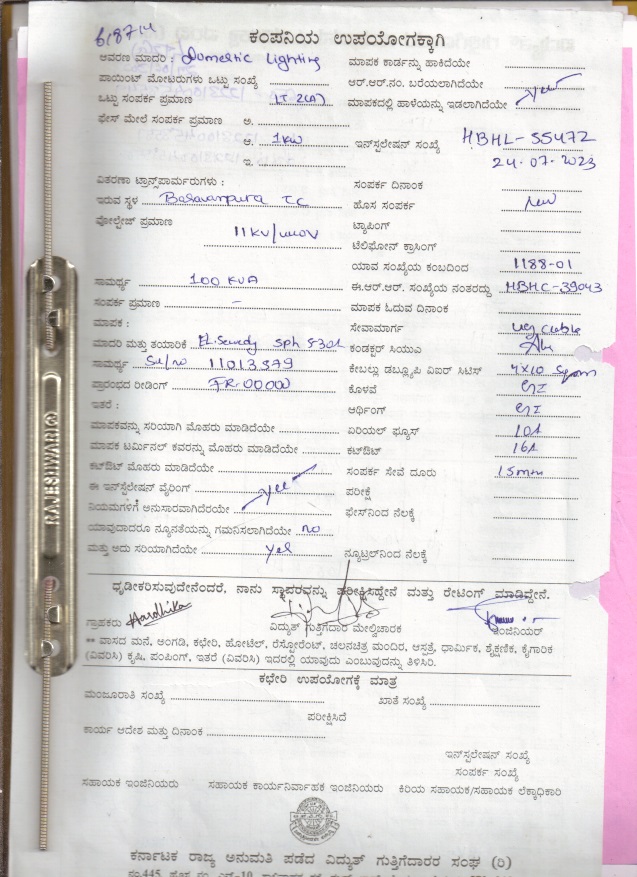 618714
ಕಂಪನಿಯ ಉಪಯೋಗಕ್ಕಾಗಿ
ಆವರಣ ಮಾದರಿ : Domestic Lighting
ಮಾಪಕ ಕಾರ್ಡನ್ನು ಹಾಕಿದೆಯೇ
ಪಾಯಿಂಟ್ ಮೋಟರುಗಳು ಒಟ್ಟು ಸಂಖ್ಯೆ
ಆರ್.ಆರ್.ನಂ. ಬರೆಯಲಾಗಿದೆಯೇ
ಒಟ್ಟು ಸಂಪರ್ಕ ಪ್ರಮಾಣ LT 2(A)
ಮಾಪಕದಲ್ಲಿ ಹಾಳೆಯನ್ನು ಇಡಲಾಗಿದೆಯೇ yes
ಫೇಸ್ ಮೇಲೆ ಸಂಪರ್ಕ ಪ್ರಮಾಣ ಅ.
ಆ. 1kw
ಇನ್‌ಸ್ಟಲೇಷನ್ ಸಂಖ್ಯೆ HBHL-55472
ಇ.
24-07-2023
ವಿತರಣಾ ಟ್ರಾನ್ಸ್‌ಪಾರ್ಮರುಗಳು :
ಸಂಪರ್ಕ ದಿನಾಂಕ
ಇರುವ ಸ್ಥಳ Basavanpura TC
ಹೊಸ ಸಂಪರ್ಕ new
ವೋಲ್ಟೇಜ್ ಪ್ರಮಾಣ
11KV/
ಟ್ಯಾಪಿಂಗ್
ಟೆಲಿಫೋನ್ ಕ್ರಾಸಿಂಗ್
ಯಾವ ಸಂಖ್ಯೆಯ ಕಂಬದಿಂದ 1188-01
ಸಾಮರ್ಥ್ಯ 100 KVA
ಈ.ಆರ್.ಆರ್. ಸಂಖ್ಯೆಯ ನಂತರದ್ದು HBHC-39043
ಸಂಪರ್ಕ ಪ್ರಮಾಣ -
ಮಾಪಕ ಓದುವ ದಿನಾಂಕ
ಮಾಪಕ :
ಸೇವಾಮಾರ್ಗ ug cable
ಮಾದರಿ ಮತ್ತು ತಯಾರಿಕೆ sph
ಕಂಡಕ್ಟರ್ ಸಿಯುಎ
ಸಾಮರ್ಥ್ಯ Sl/no 11013379
ಕೇಬಲ್ಲು ಡಬ್ಲ್ಯೂಪಿ ವಿಐರ್ ಸಿಟಿಸ್ 4x10 Sqmm
ಪ್ರಾರಂಭದ ರೀಡಿಂಗ್ FR-00000
ಕೊಳವೆ GI
ಇತರೆ :
ಆರ್ಥಿಂಗ್ GI
ಮಾಪಕವನ್ನು ಸರಿಯಾಗಿ ಮೊಹರು ಮಾಡಿದೆಯೇ
ಏರಿಯಲ್ ಫ್ಯೂಸ್ 10A
ಮಾಪಕ ಟರ್ಮಿನಲ್ ಕವರನ್ನು ಮೊಹರು ಮಾಡಿದೆಯೇ
ಕಟ್‌ಔಟ್ 16A
ಕಟ್‌ಔಟ್ ಮೊಹರು ಮಾಡಿದೆಯೇ
ಸಂಪರ್ಕ ಸೇವೆ ದೂರು 15mm
ಈ ಇನ್‌ಸ್ಟಲೇಷನ್ ವೈರಿಂಗ್ yes
ಪರೀಕ್ಷೆ
ನಿಯಮಗಳಿಗೆ ಅನುಸಾರವಾಗಿದೆರಯೇ
ಫೇಸ್‌ನಿಂದ ನೆಲಕ್ಕೆ
ಯಾವುದಾದರೂ ನ್ಯೂನತೆಯನ್ನು ಗಮನಿಸಲಾಗಿದೆಯೇ no
ಮತ್ತು ಅದು ಸರಿಯಾಗಿದೆಯೇ yes
ನ್ಯೂಟ್ರಲ್‌ನಿಂದ ನೆಲಕ್ಕೆ
ಧೃಡೀಕರಿಸುವುದೇನೆಂದರೆ, ನಾನು ಸ್ಥಾವರವನ್ನು ಪರೀಕ್ಷಿಸಿದ್ದೇನೆ ಮತ್ತು ರೇಟಿಂಗ್ ಮಾಡಿದ್ದೇನೆ.
ಗ್ರಾಹಕರು Hardhika
ವಿದ್ಯುತ್ ಗುತ್ತಿಗೆದಾರ ಮೇಲ್ವಿಚಾರಕ
ಇಂಜಿನಿಯರ್
** ವಾಸದ ಮನೆ, ಅಂಗಡಿ, ಕಛೇರಿ, ಹೋಟೆಲ್, ರೆಸ್ಟೋರೆಂಟ್, ಚಲನಚಿತ್ರ ಮಂದಿರ, ಆಸ್ಪತ್ರೆ, ಧಾರ್ಮಿಕ, ಶೈಕ್ಷಣಿಕ, ಕೈಗಾರಿಕೆ
(ವಿವರಿಸಿ) ಕೃಷಿ, ಪಂಪಿಂಗ್, ಇತರೆ (ವಿವರಿಸಿ) ಇದರಲ್ಲಿ ಯಾವುದು ಎಂಬುವುದನ್ನು ತಿಳಿಸಿರಿ.
ಕಛೇರಿ ಉಪಯೋಗಕ್ಕೆ ಮಾತ್ರ
ಮಂಜೂರಾತಿ ಸಂಖ್ಯೆ
ಖಾತೆ ಸಂಖ್ಯೆ
ಪರೀಕ್ಷಿಸಿದೆ
ಕಾರ್ಯ ಆದೇಶ ಮತ್ತು ದಿನಾಂಕ
ಇನ್‌ಸ್ಟಲೇಷನ್ ಸಂಖ್ಯೆ
ಸಂಪರ್ಕ ಸಂಖ್ಯೆ
ಸಹಾಯಕ ಇಂಜಿನಿಯರು
ಸಹಾಯಕ ಕಾರ್ಯನಿರ್ವಾಹಕ ಇಂಜಿನಿಯರು
ಕಿರಿಯ ಸಹಾಯಕ/ಸಹಾಯಕ ಲೆಕ್ಕಾಧಿಕಾರಿ
ಕರ್ನಾಟಕ ರಾಜ್ಯ ಅನುಮತಿ ಪಡೆದ ವಿದ್ಯುತ್ ಗುತ್ತಿಗೆದಾರರ ಸಂಘ (ರಿ)
RAJESHWARI